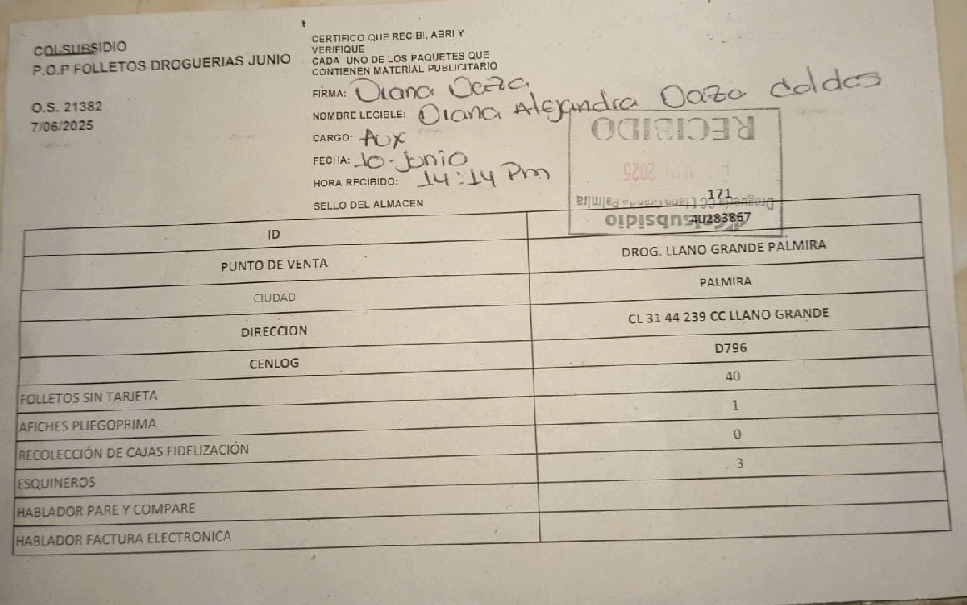 COLSUBSIDIO
P.O.P FOLLETOS DROGUERIAS JUNIO
O.S. 21382
7/06/2025
CERTIFICO QUE RECIBI, ABRI Y
VERIFIQUE
CADA UNO DE LOS PAQUETES QUE
CONTIENEN MATERIAL PUBLICITARIO
FIRMA: Diana Daza
NOMBRE LEGIBLE: Diana Alejandra Daza Caldas
CARGO: Aux
FECHA: 10-Junio
HORA RECIBIDO: 14:14 Pm
SELLO DEL ALMACEN
RECIBIDO
2025
Drogueria CC Llano Grande Palmira
Colsubsidio
171
ID 40283867
PUNTO DE VENTA DROG. LLANO GRANDE PALMIRA
CIUDAD PALMIRA
DIRECCION CL 31 44 239 CC LLANO GRANDE
CENLOG D796
FOLLETOS SIN TARJETA 40
AFICHES PLIEGOPRIMA 1
RECOLECCIÓN DE CAJAS FIDELIZACIÓN 0
ESQUINEROS 3
HABLADOR PARE Y COMPARE
HABLADOR FACTURA ELECTRONICA